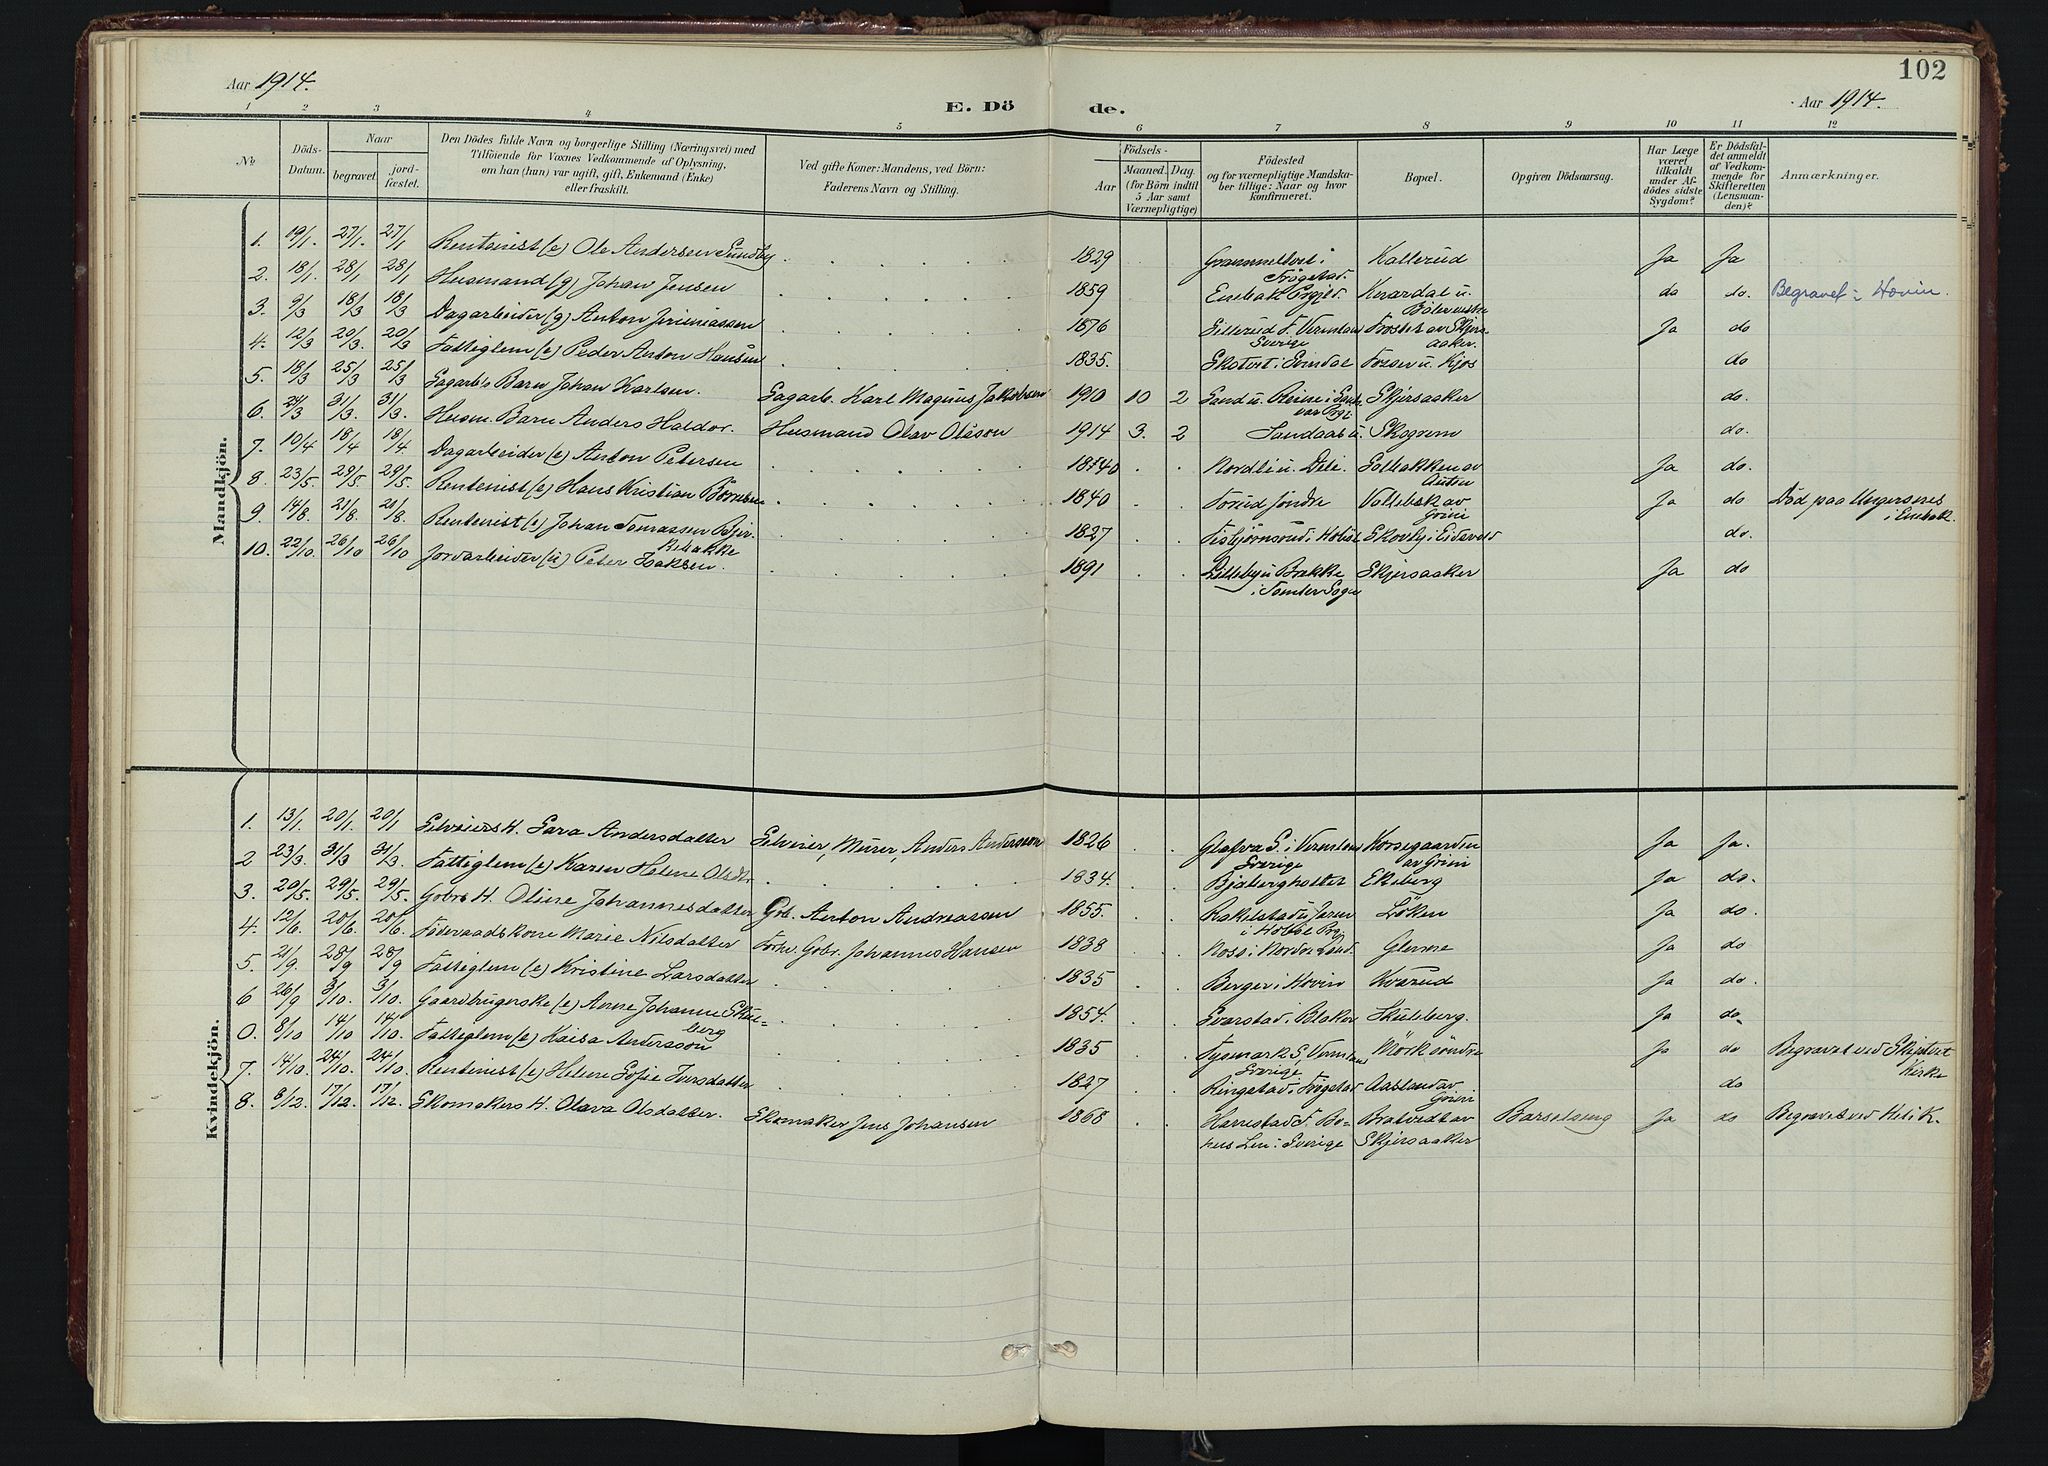 102
Aar 1914.
E. Dö
de.
Aar 1914.
1 2 3 4 5 6 7 8 9 10 11 12
No
Döds-Datum.
Naar
begravet.
jord-fæstet.
Den Dödes fulde Navn og borgerlige Stilling (Næringsvei) med
Tilföiende for Voxnes Vedkommende af Oplysning,
om han (hun) var ugift, gift, Enkemand (Enke)
eller fraskilt.
Ved gifte Koner: Mandens, ved Börn:
Faderens Navn og Stilling.
Födsels-
Aar
Maaned. Dag.
(for Börn indtil
5 Aar samt
Værnepligtige)
Födested
og for værnepligtige Mandska-
ber tillige: Naar og hvor
konfirmeret.
Bopæl.
Opgiven Dödsaarsag.
Har Læge
været
tilkaldt
under Af-
dödes sidste
Sygdom?
Er Dödsfal-
det anmeldt
af Vedkom-
mende for
Skifteretten
(Lensman-
den)?
Anmærkninger.
Mandkjön.
1. 19/1. 27/1. 27/1 Rentenist (e) Ole Andersen Sundby 1829 Grammeltvet i Frøgstad. Kallerud Ja Ja
2. 18/1. 28/1 28/1 Husmand (g) Johan Jensen 1859 Enebak Prgjld. do do. Begravet i Hovin.
3. 9/3 18/3 18/3 Dagarbeider (g) Anton Jerimiassen 1876 Sillerud S. Vermland Sverige Ja do
4. 12/3 20/3. 20/3 Fattiglem (e) Peder Anton Hansen 1835. Skotvet i Somdal do
5. 18/3 25/3 25/3 Sagarb's Barn Johan Karlsen. Sagarb. Karl Magnus Jakobsen 1910 10 2 Skjersaaker do.
6. 24/3 31/3. 31/3. Husm. Barn Anders Haldor. Husmand Olav Olsson 1914 3. 2 Sandaas u. Skogrom do.
7. 10/4 18/4 18/4 Dagarbeider (e) Anton Petersen 1840 Nordli u. Dele. Solbakken av Ja do.
8. 23/5. 29/5. 29/5. Rentenist (e) Hans Kristian Börresen 1840 Forud söndre av Grini Ja do Död paa Ungersnes i Enebak.
9. 14/8. 21/8. 21/8. Rentenist (e) Johan Tomassen 1827 Skovly i Eidsvold do.
10. 22/10. 26/10 26/10 Jordarbeider (ü) Peter Isaksen. 1891 Lilleby u. Brække i Tomter Sogn Skjersaaker Ja do
Kvindekjön.
1. 13/1. 20/1. 20/1 Selveiers H. Sara Andersdatter Selveier, Murer, Anders Andersson 1826 Glafva S. i Vermland Sverige Korsegaarden av Grini Ja Ja.
2 23/3. 31/3 31/3. Fattiglem (e) Karen Helene Olsdtr 1834. Ekeberg Ja do.
3. 20/5. 29/5. 29/5. Gbrs H. Oline Johannesdatter Gbr. Anton Andreassen 1855. i Hobbel Prgj. Löken Ja do.
4. 12/6. 20/6. 20/6. Föderaadskone Marie Nilsdatter Forhv. Gbr. Johannes Hansen 1838 Moss i Nordre Land. Glenne Ja do
5. 21/9. 28/9 28/9 Fattiglem (e) Kristine Larsdatter 1835 Berger i Hovin Kvarud Ja do.
6 26/9 3/10. 3/10. Gaardbrugerske (e) Anne Johanne Skulberg 1854. Svarstad i Blaker Skulberg. Ja do
0. 8/10 14/10 14/10. Fattiglem (e) Kaisa Andersson 1835 Fysmark S. Vermland Sverige Mörk söndre Ja do Begravet ved Skiptvet Kirke
7. 14/10. 24/10. 24/10. Rentenist (e) Helene Sofie Iversdatter 1827 Ringstad i Frögstad Aasland av Grini do
8. 8/12. 17/12. 17/12. Skomakers H. Olava Olsdatter. Skomaker Jens Johansen 1868 Harrestad S. Bohus Len i Sverige Bratvedt av Skjersaaker Barselseng Ja do Begravet ved